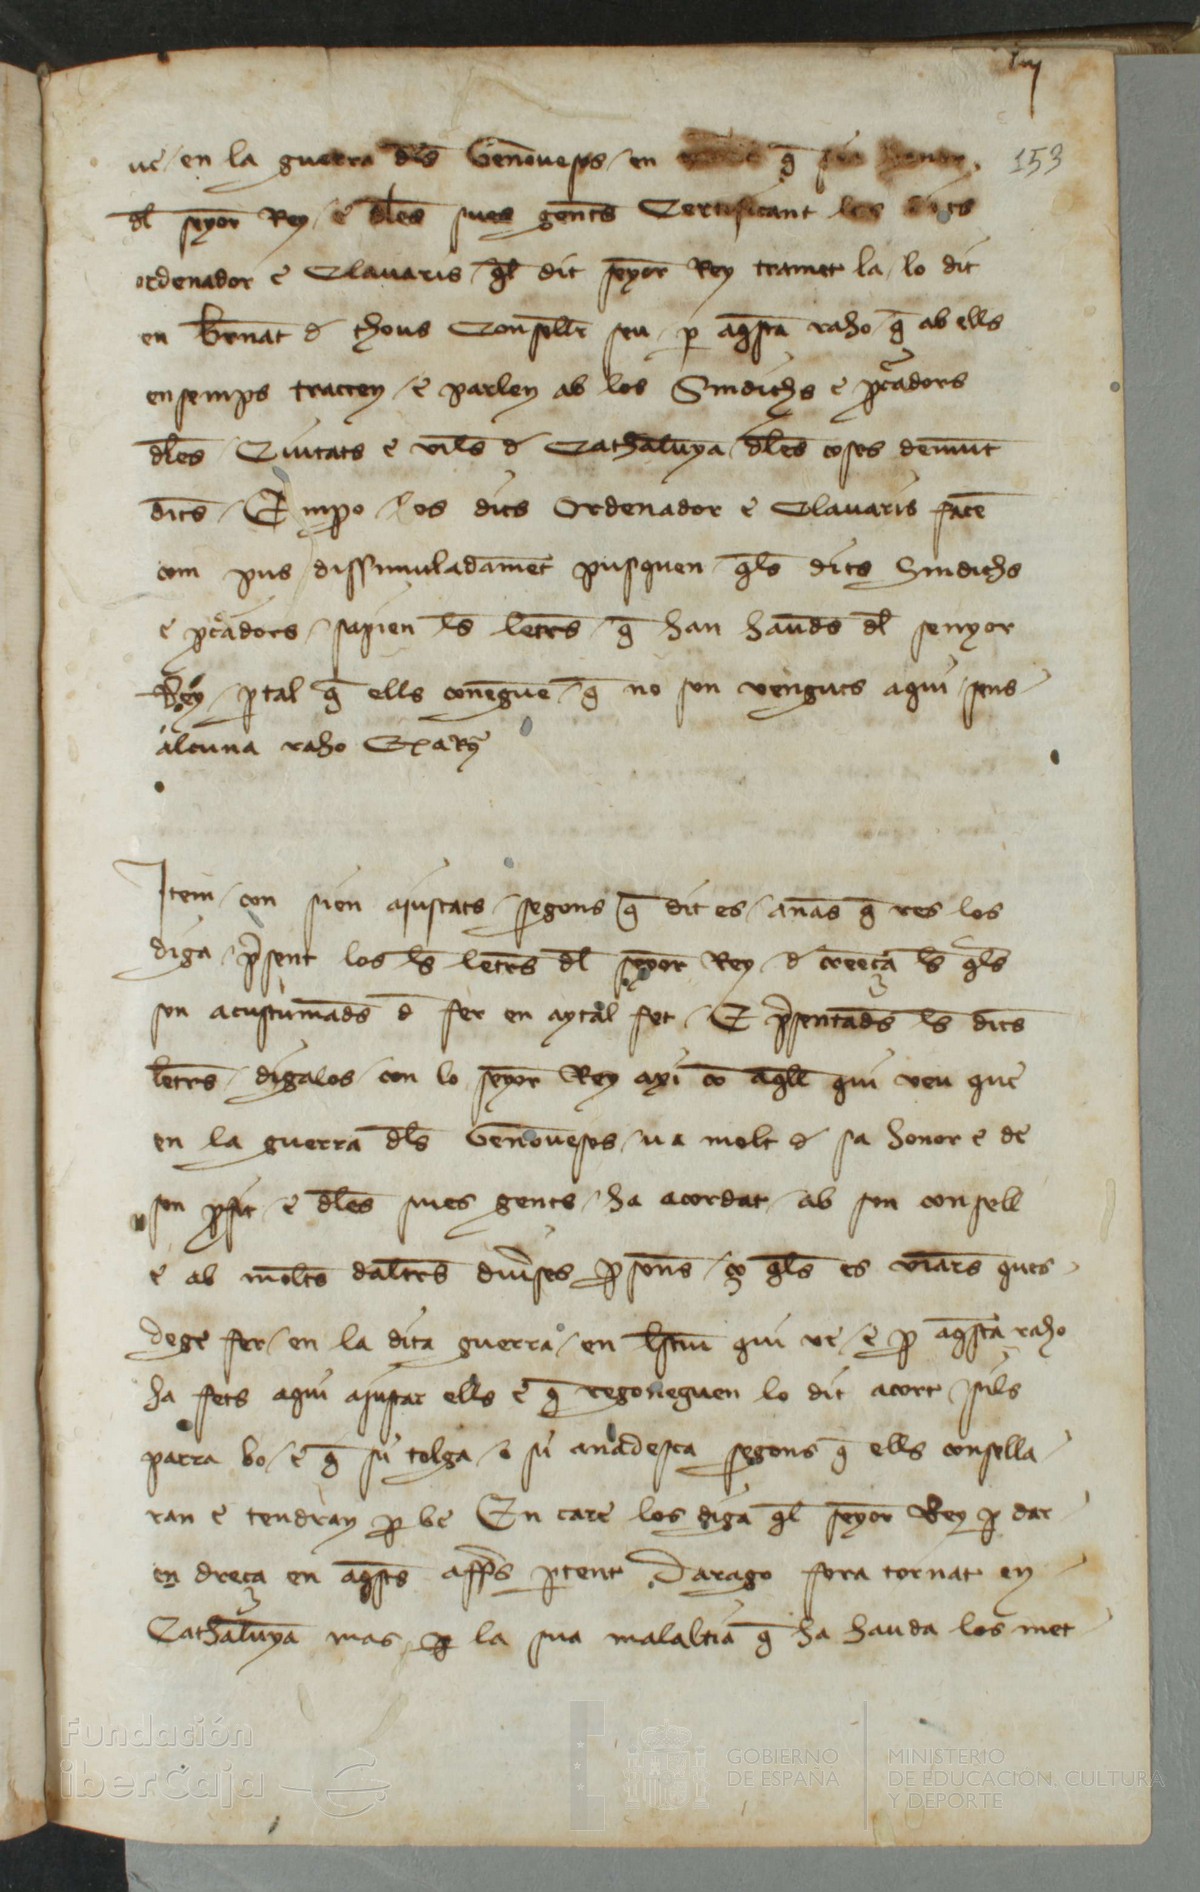 153
ue / en la guerra dls Genoueses / en q̄
dl seyor Rey / e dles sues gents Certificant los dits
ordenador e Clauaris / q̄l dit seyor Rey tramet la / lo dit
en Bernat d Thous Consellr seu / p aq̄sta raho / q̄ ab ells
ensemps tracten / e parlen ab los Sindichs e pcadors
dles Ciutats e viles d Cathalunya / dles coses demunt
dits / E mpo / los dits Ordenador e Clauaris facē
com pus dissimuladamēt pusquen / q̄ls dits Sindichs
e pcadors / sapien ls letrs / q̄ han hauds dl senyor
Rey / p tal q̄ ells conegue / q̄ no son venguts aqui / sens
alcuna raho
Item / con sien aiustats / segons q̄ dit es / anās q̄ res los
diga / psent los ls letrs dl seyor Rey / d creeca ls q̄ls
son acustumads d fer en aytal fet / E psentads ls dits
letrs / digalos / con lo seyor Rey axi co aq̄ll qui veu que
en la guerra dls Genoueses / ua molt d sa honor e de
son pfit / e dles sues gents / ha acordat / ab son consell
e ab molts daltrs diuses psons / co q̄ls es viars ques
dege fer / en la dita guerra / en lstiu qui ve / e p aq̄sta raho
ha fets aqui aiustar ells e q̄ regoneguen lo dit acort / sils
parra bo / e q̄ si tolga / o si anadesca segons q̄ ells consella
ran e tendran p be En care los diga q̄l seyor Rey p dar
en dreca en aq̄sts affs ptent Darago fora tornat en
Cathalunya mas / p la sua malaltia q̄ ha hauda los met
Fundación
iberCaja
GOBIERNO
DE ESPAÑA
MINISTERIO
DE EDUCACIÓN, CULTURA
Y DEPORTE